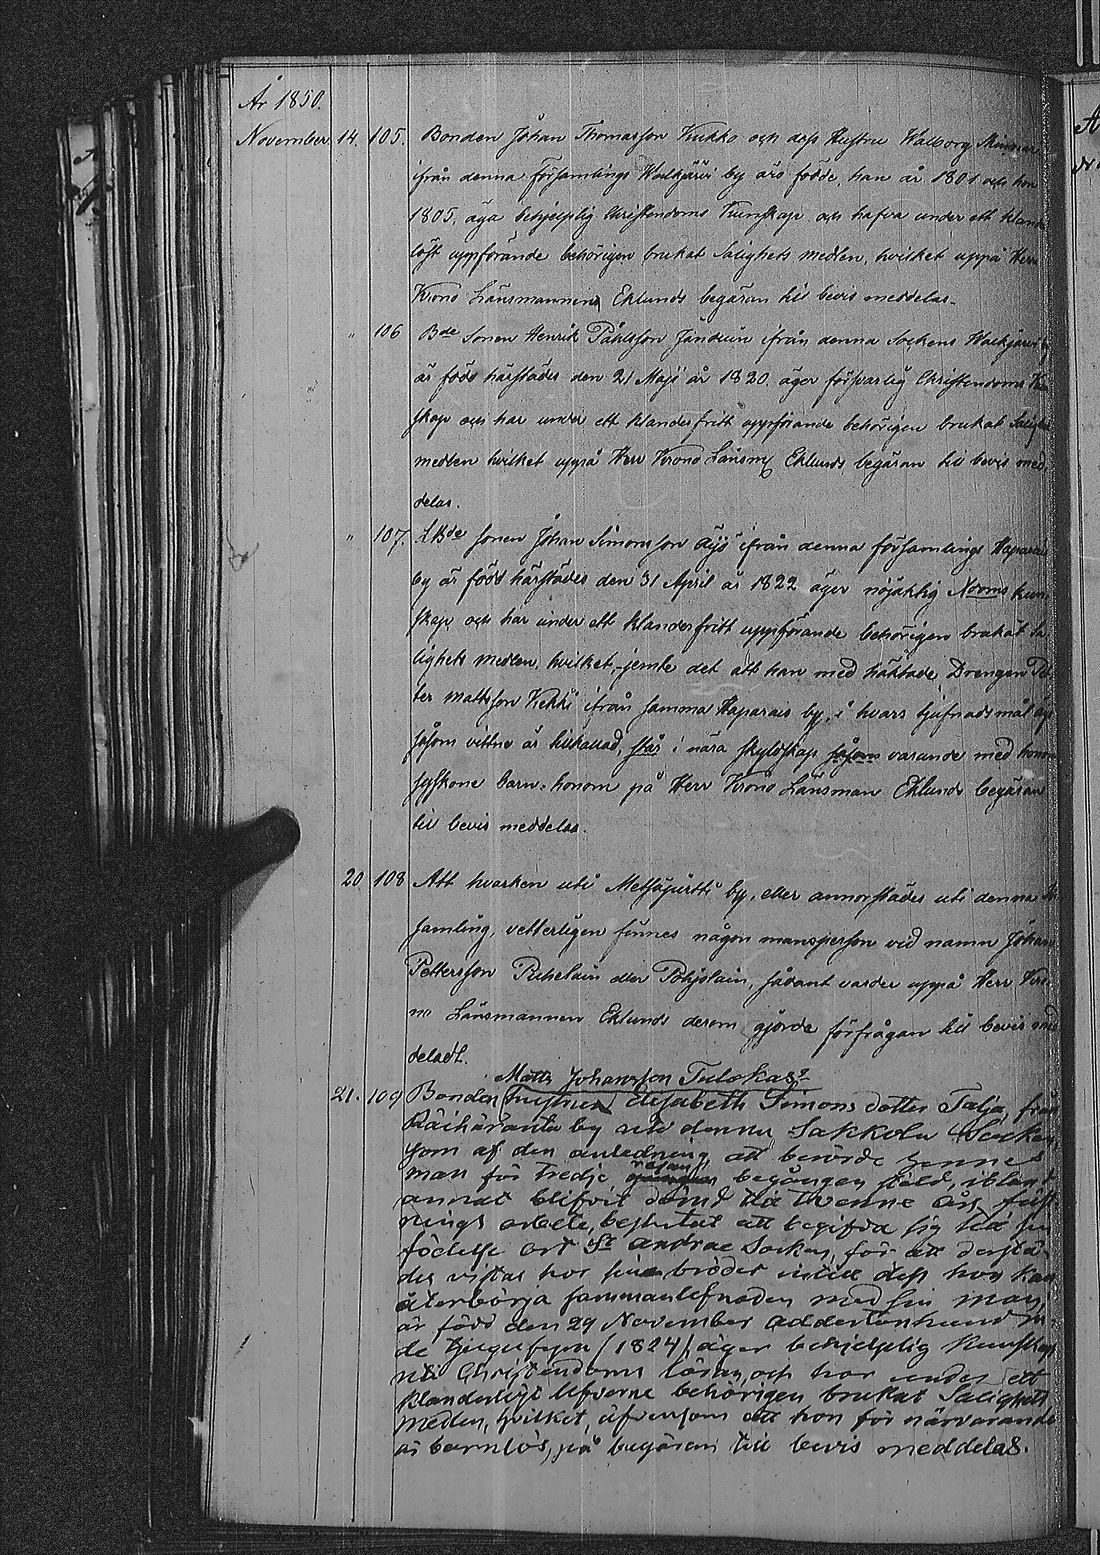 År 1850.
November. 14. 105. Bonden Johan Thomasson Kukko och dess Hustru Walborg
ifrån denna Församlings Walkjärvi by äro födde, han år 1801 och hon
1805, äga behjelplig Christendoms Kunskap och hafva under ett kland
löst uppförande behörigen brukat Salighets medlen, hvilket uppå Herr
Krono Länsmannens Eklunds begäran till bevis meddelas.
" 106 Bde Sonen Henrik Påhlsson ifrån denna Sockens Walkjärvi
är född härstädes den 21 Maji år 1820. äger försvarlig Christendoms
skap och har under ett klanderfritt uppförande behörigen brukat
medlen hvilket uppå Herr Krono Länsm Eklunds begäran till bevis med
delas.
" 107. Bde sonen Johan Simonsson ifrån denna församlings Haparais
by är född härstädes den 31 April år 1822 äger nöjaktig kun
skap och har under ett klanderfritt uppförande behörigen brukat Sa
lighets medlen, hvilket, jemte det att han med häktade Drengen Pet
ter Mattsson Kekki ifrån samma Haparais by, i hvars tjufnadsmål
såsom vittne är inkallad, står i nära skyldskap såsom varande med honom
syskone barn, honom på Herr Krono Länsman Eklunds begäran
till bevis meddelas.
20 108 Att hvarken uti Metsäpirtti by, eller annorstädes uti denna
samling, vetterligen finnes någon mansperson vid namn Johan
Pettersson Puhelain eller Pohjolain, sådant varder uppå Herr Kro
no Länsmannen Eklunds derom gjorde förfrågan till bevis med
deladt.
Matts Johansson Tulokas
21. 109 Bonden hustrun Elisabeth Simons dotter Talja, från
Räihäranta by uti denna Sakkola Socken
som af den anledning att berörde hennes
man för tredje resan begången stöld, ibland
annat blifvit dömd till tvenne års fäst
nings arbete, beslutat att begifva sig till sin
födelse ort St Andreæ Socken, för att derstä
des vistas hos sin broder intill dess hon kan
återbörja sammanlefnaden med sin man,
är född den 29 November adderton hundra
de tjugufyra (1824) äger behjelplig kunskap
uti Christendoms läran, och har under ett
klanderlöst lefverne behörigen brukat Salighets
medlen, hvilket, äfvensom att hon för närvarande
är barnlös, på begäran till bevis meddelas.